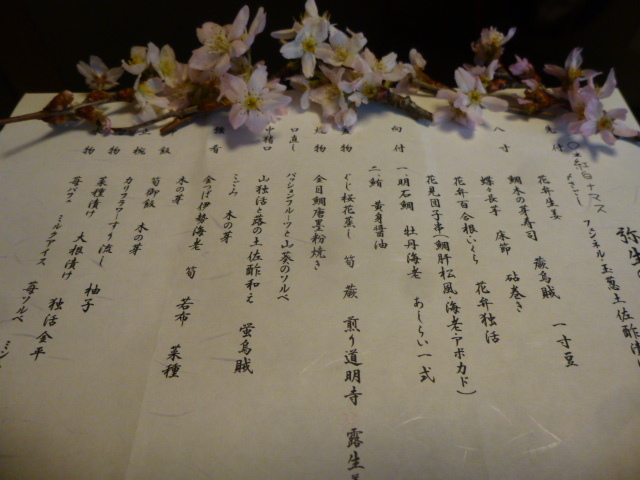 弥生
〇紅白ナマス
先付 よもぎ フェンネル・玉葱土佐酢
花弁生姜
八寸 鯛木の芽寿司 蕨烏賊 一寸豆
蝶々長芋 床節 砧巻き
花弁百合根いくら 花弁独活
花見団子串(鯛肝松風・海老・アボカド)
向付 一、明石鯛 牡丹海老 あしらい一式
二、鮪 黄身醤油
蒸物 ぐじ桜花蒸し 筍 蕨 煎り道明寺 露生姜
焼物 金目鯛唐墨粉焼き
口直し パッションフルーツと山葵のソルベ
中猪口 山独活と蕗の土佐酢和え 蛍烏賊
こごみ 木の芽
強肴 金つば伊勢海老 筍 若布 菜種
木の芽
御飯 筍御飯 木の芽
止椀 カリフラワーすり流し 柚子
香物 菜種漬け 大根漬け 独活金平
果物 苺パフェ ミルクアイス 苺ソルベ ミン